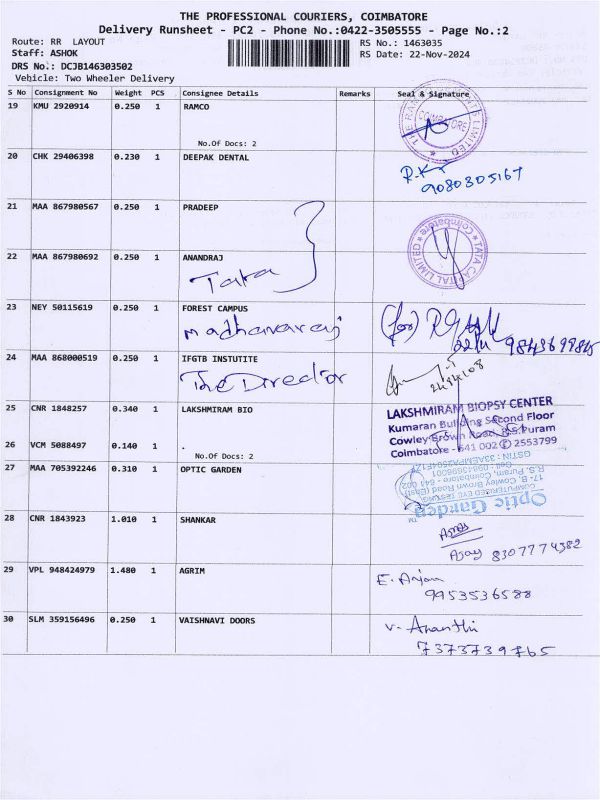 THE PROFESSIONAL COURIERS, COIMBATORE
Delivery Runsheet - PC2 - Phone No.:0422-3505555 - Page No.:2
Route: RR LAYOUT
RS No.: 1463035
Staff: ASHOK
RS Date: 22-Nov-2024
DRS No.: DCJB146303502
Vehicle: Two Wheeler Delivery
S No Consignment No Weight PCS Consignee Details Remarks Seal & Signature
19 KMU 2920914 0.250 1 RAMCO
COIMBATORE
No.Of Docs: 2
20 CHK 29406398 0.230 1 DEEPAK DENTAL
9080305167
21 MAA 867980567 0.250 1 PRADEEP
TATA CAPITAL LIMITED Coimbatore
22 MAA 867980692 0.250 1 ANANDRAJ
Tata
23 NEY 50115619 0.250 1 FOREST CAMPUS
Madhavaraj
(for)
22/11
24 MAA 868000519 0.250 1 IFGTB INSTUTITE
The Director
25 CNR 1848257 0.340 1 LAKSHMIRAM BIO
LAKSHMIRAM BIOPSY CENTER
Kumaran Building Second Floor
Cowley Brown Road, R.S.Puram
Coimbatore - 641 002 ✆ 2553799
26 VCM 5088497 0.140 1 .
No.Of Docs: 2
27 MAA 705392246 0.310 1 OPTIC GARDEN
Optic Garden
COMPUTERISED EYE TESTING
17- B, Cowley Brown Road (East)
R.S. Puram, Coimbatore - 641 002
28 CNR 1843923 1.010 1 SHANKAR
Ajay 8307774382
29 VPL 948424979 1.480 1 AGRIM
E. Anjam
9953536588
30 SLM 359156496 0.250 1 VAISHNAVI DOORS
V. Ananthi
7373739765